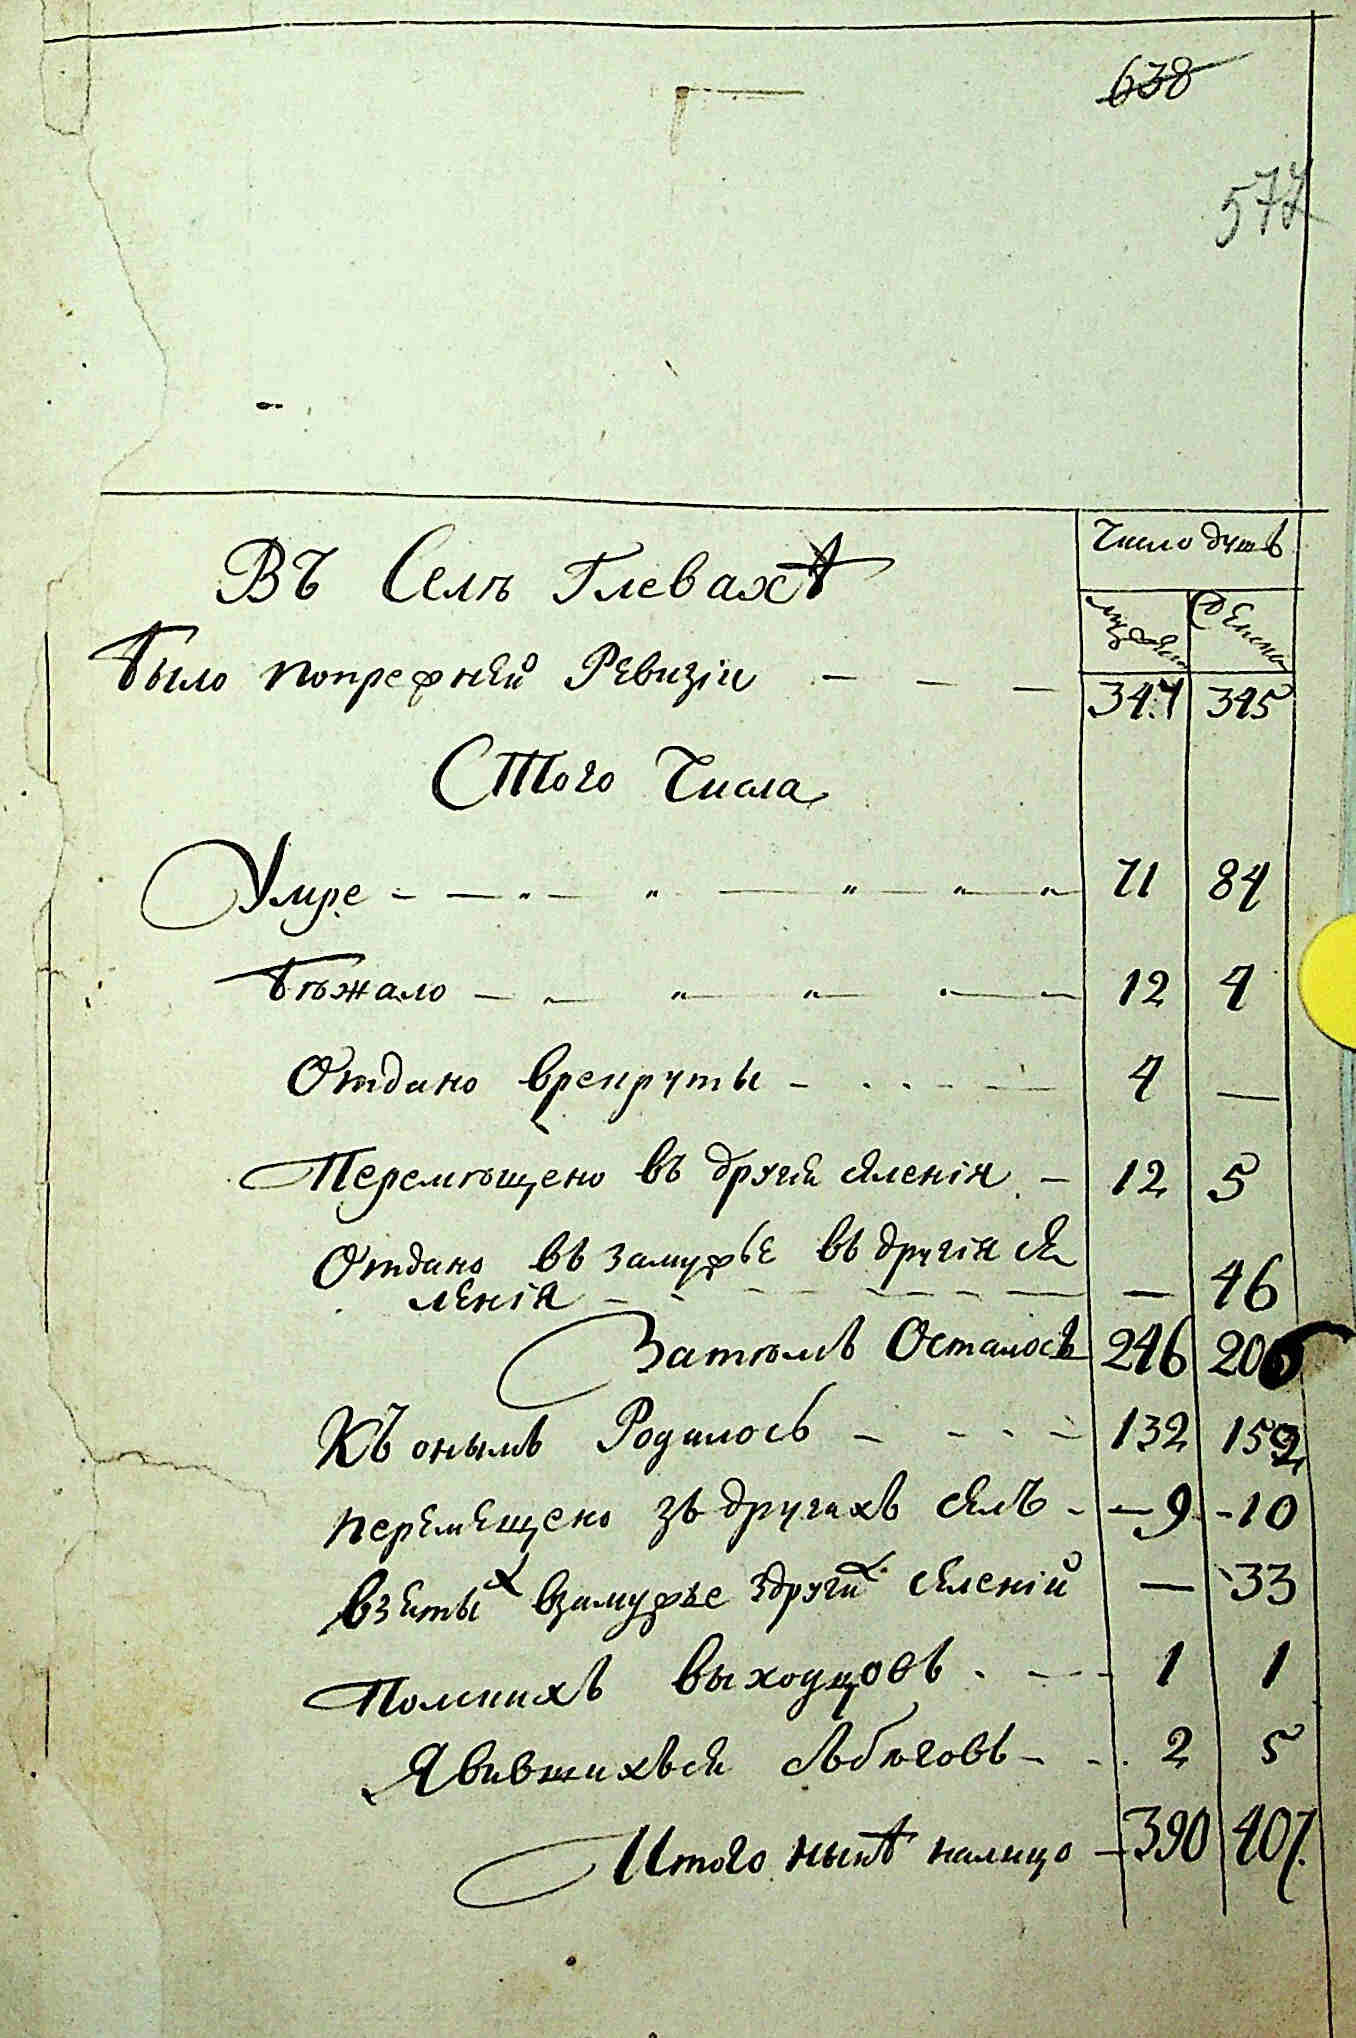 638
577
Число душъ
Въ Селѣ Глевахѣ
мужеск женска
Было попрежней Ревизіи — — — 347 345
Стого Числа
Умре 71 84
Бѣжало 12 4
Отдано врекруты 4 —
Перемѣщено въ другія селенія — 12 5
Отдано въ замужье въ другія се
ленія — 46
Затѣмъ Осталось 246 206
Къ онымъ Родилось 132 152
перемещено зъ другихъ селъ — 9 10
взятыхъ взамужье здругих селеній — 33
Полскихъ выходцовъ 1 1
Явившихъся збѣговъ 2 5
Итого нынѣ налицо — 390 407.